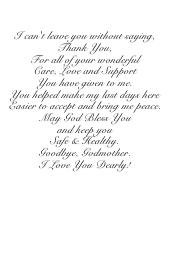 I can't leave you without saying,
Thank You,
For all of your wonderful
Care, Love and Support
You have given to me.
You helped make my last days here
Easier to accept and bring me peace.
May God Bless You
and keep you
Safe & Healthy.
Goodbye, Godmother.
I Love You Dearly!